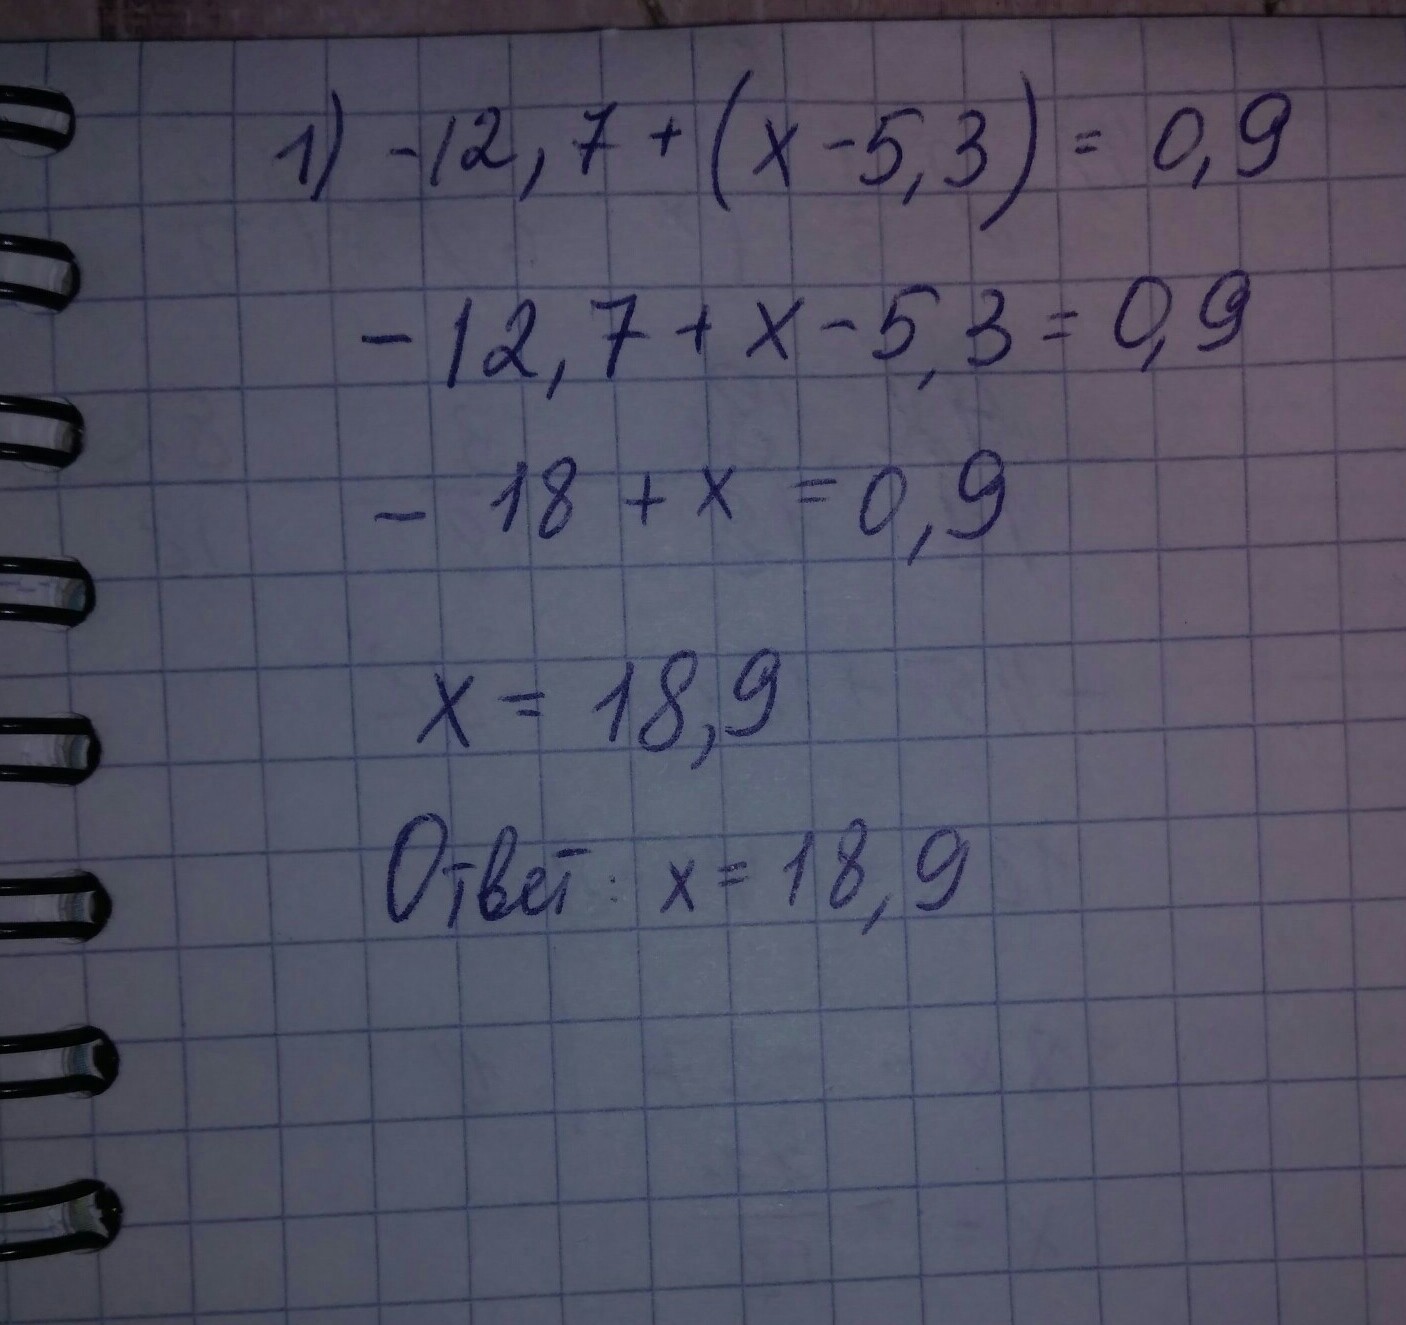 1) -12,7+(x-5,3)=0,9
-12,7+x-5,3=0,9
- 18+x=0,9
x=18,9
Ответ: x=18,9